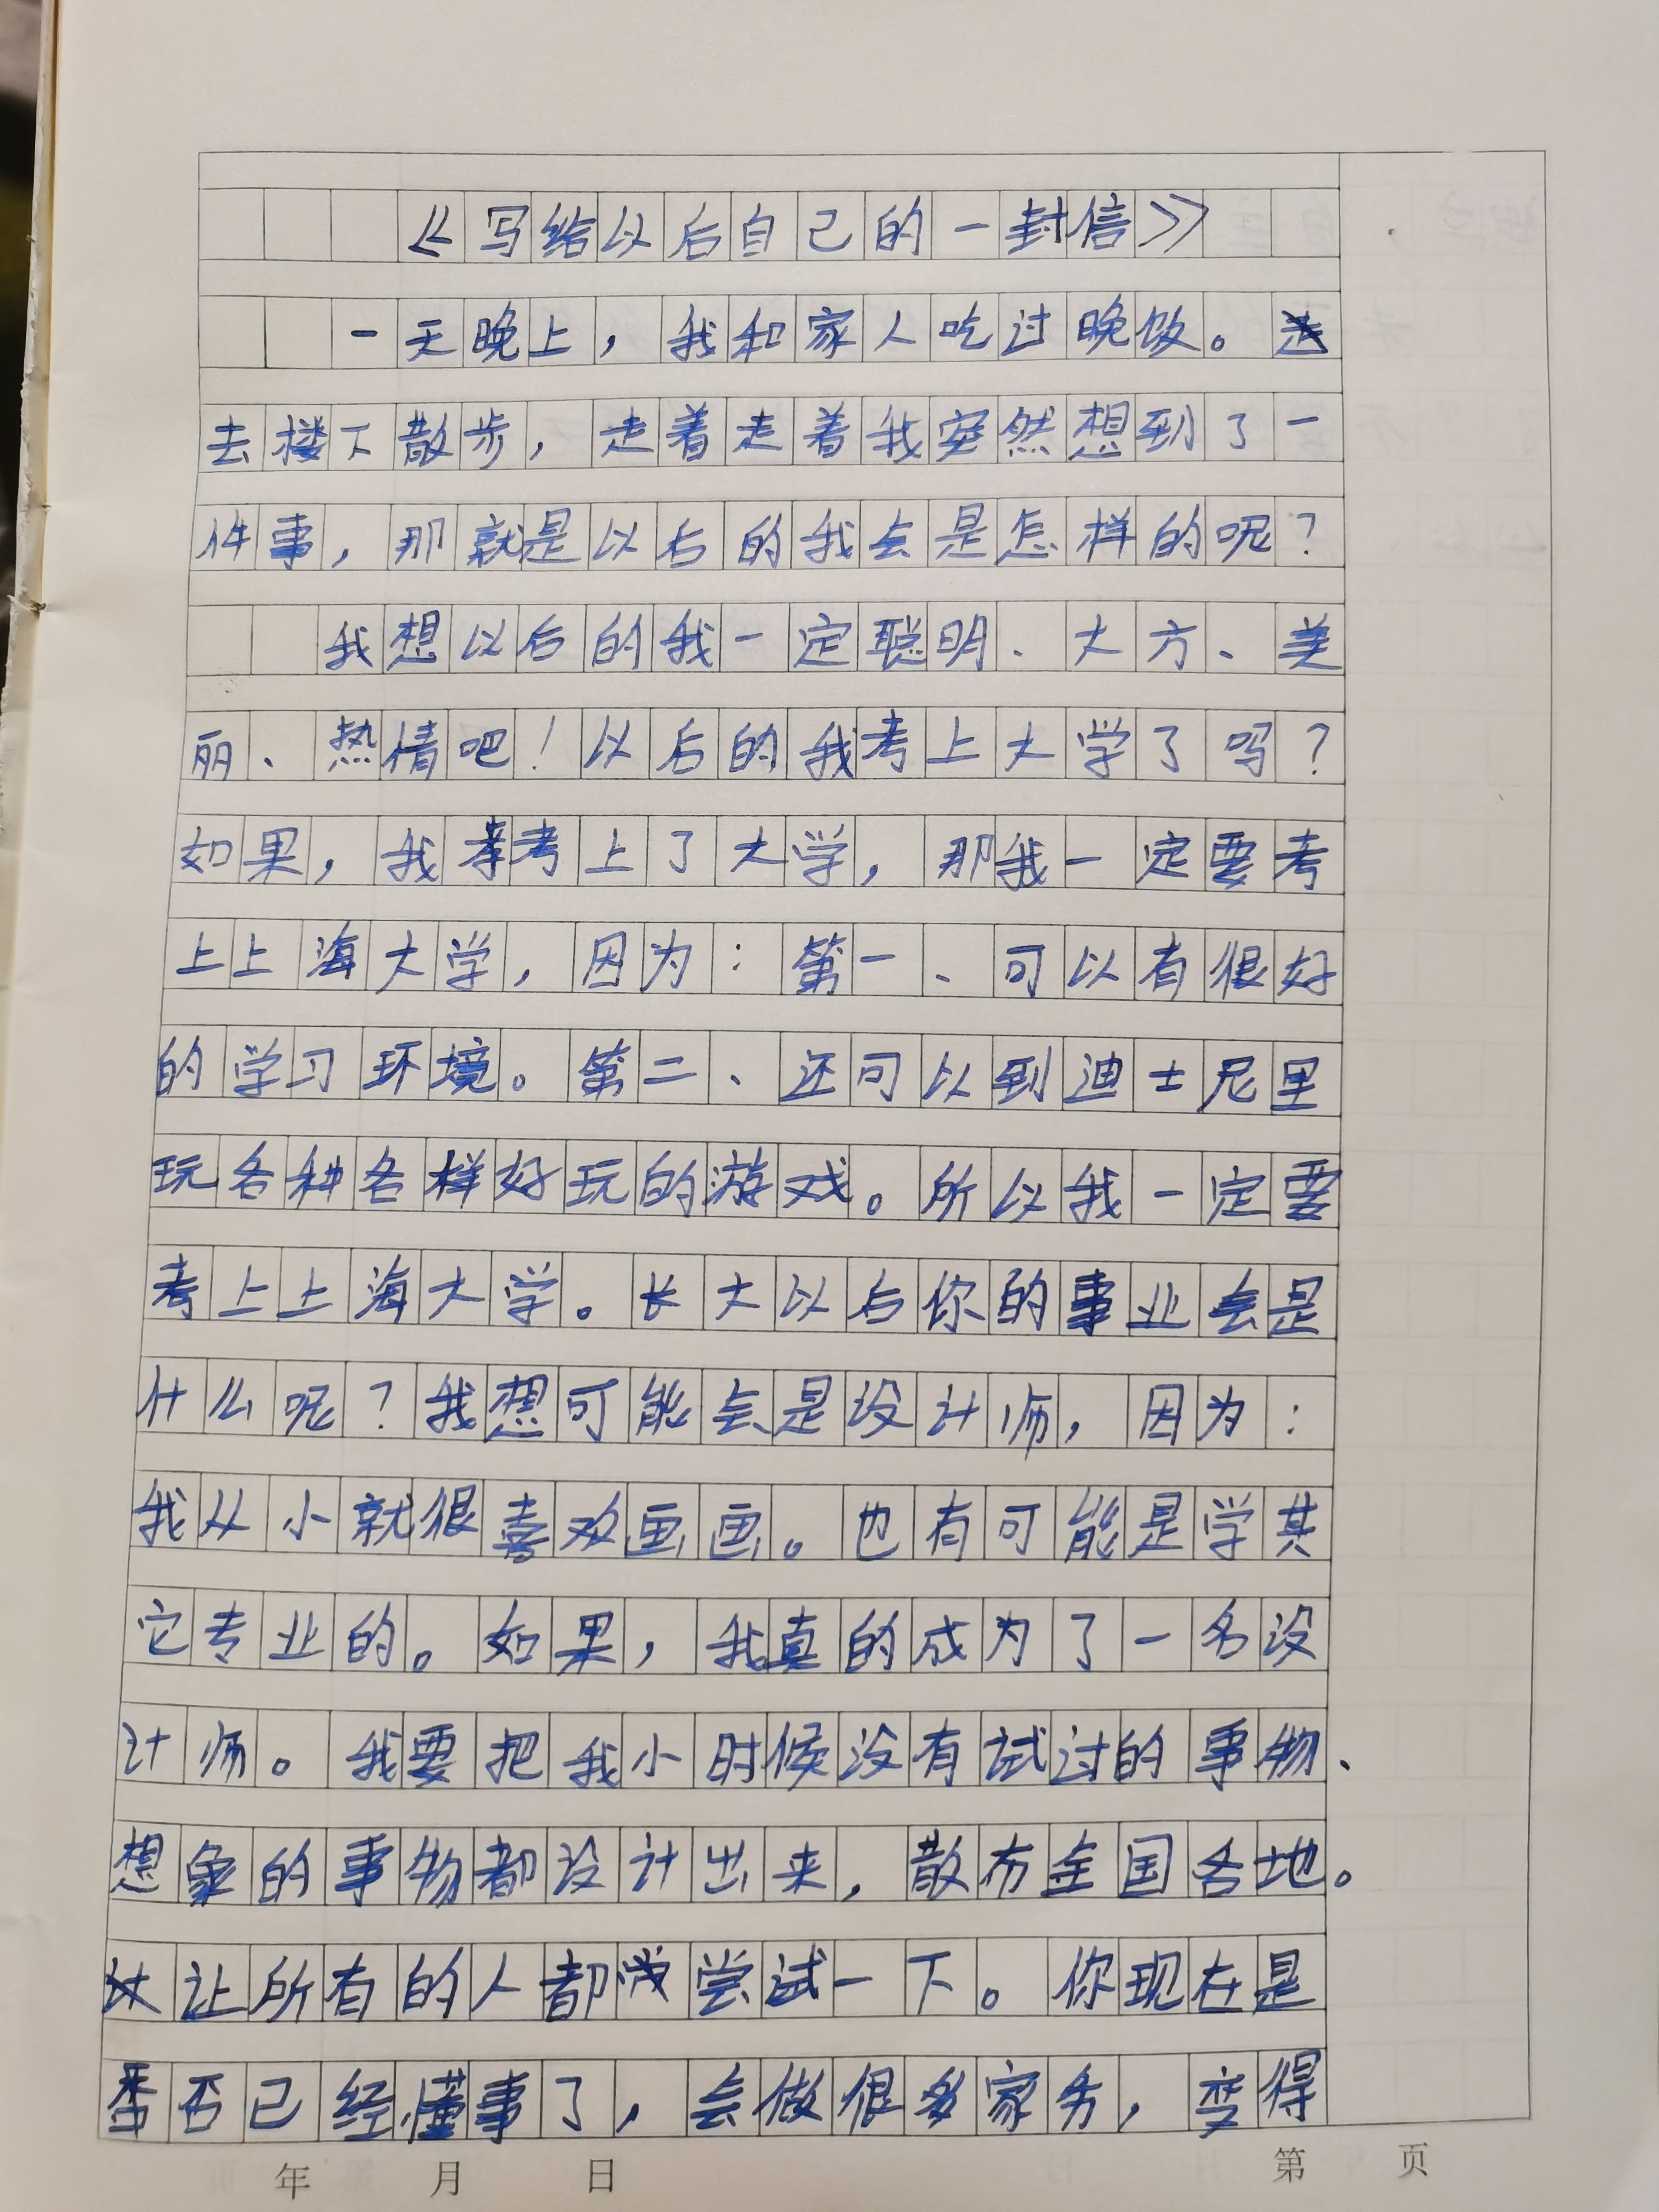 《写给以后自己的一封信》
一天晚上，我和家人吃过晚饭。
去楼下散步，走着走着我突然想到了一
件事，那就是以后的我会是怎样的呢？
我想以后的我一定聪明、大方、美
丽、热情吧！以后的我考上大学了吗？
如果，我考上了大学，那我一定要考
上上海大学，因为：第一、可以有很好
的学习环境。第二、还可以到迪士尼里
玩各种各样好玩的游戏。所以我一定要
考上上海大学。长大以后你的事业会是
什么呢？我想可能会是设计师，因为：
我从小就很喜欢画画。也有可能是学其
它专业的。如果，我真的成为了一名设
计师。我要把我小时候没有试过的事物、
想象的事物都设计出来，散布全国各地。
让所有的人都尝试一下。你现在是
否已经懂事了，会做很多家务，变得
年 月 日 第 页